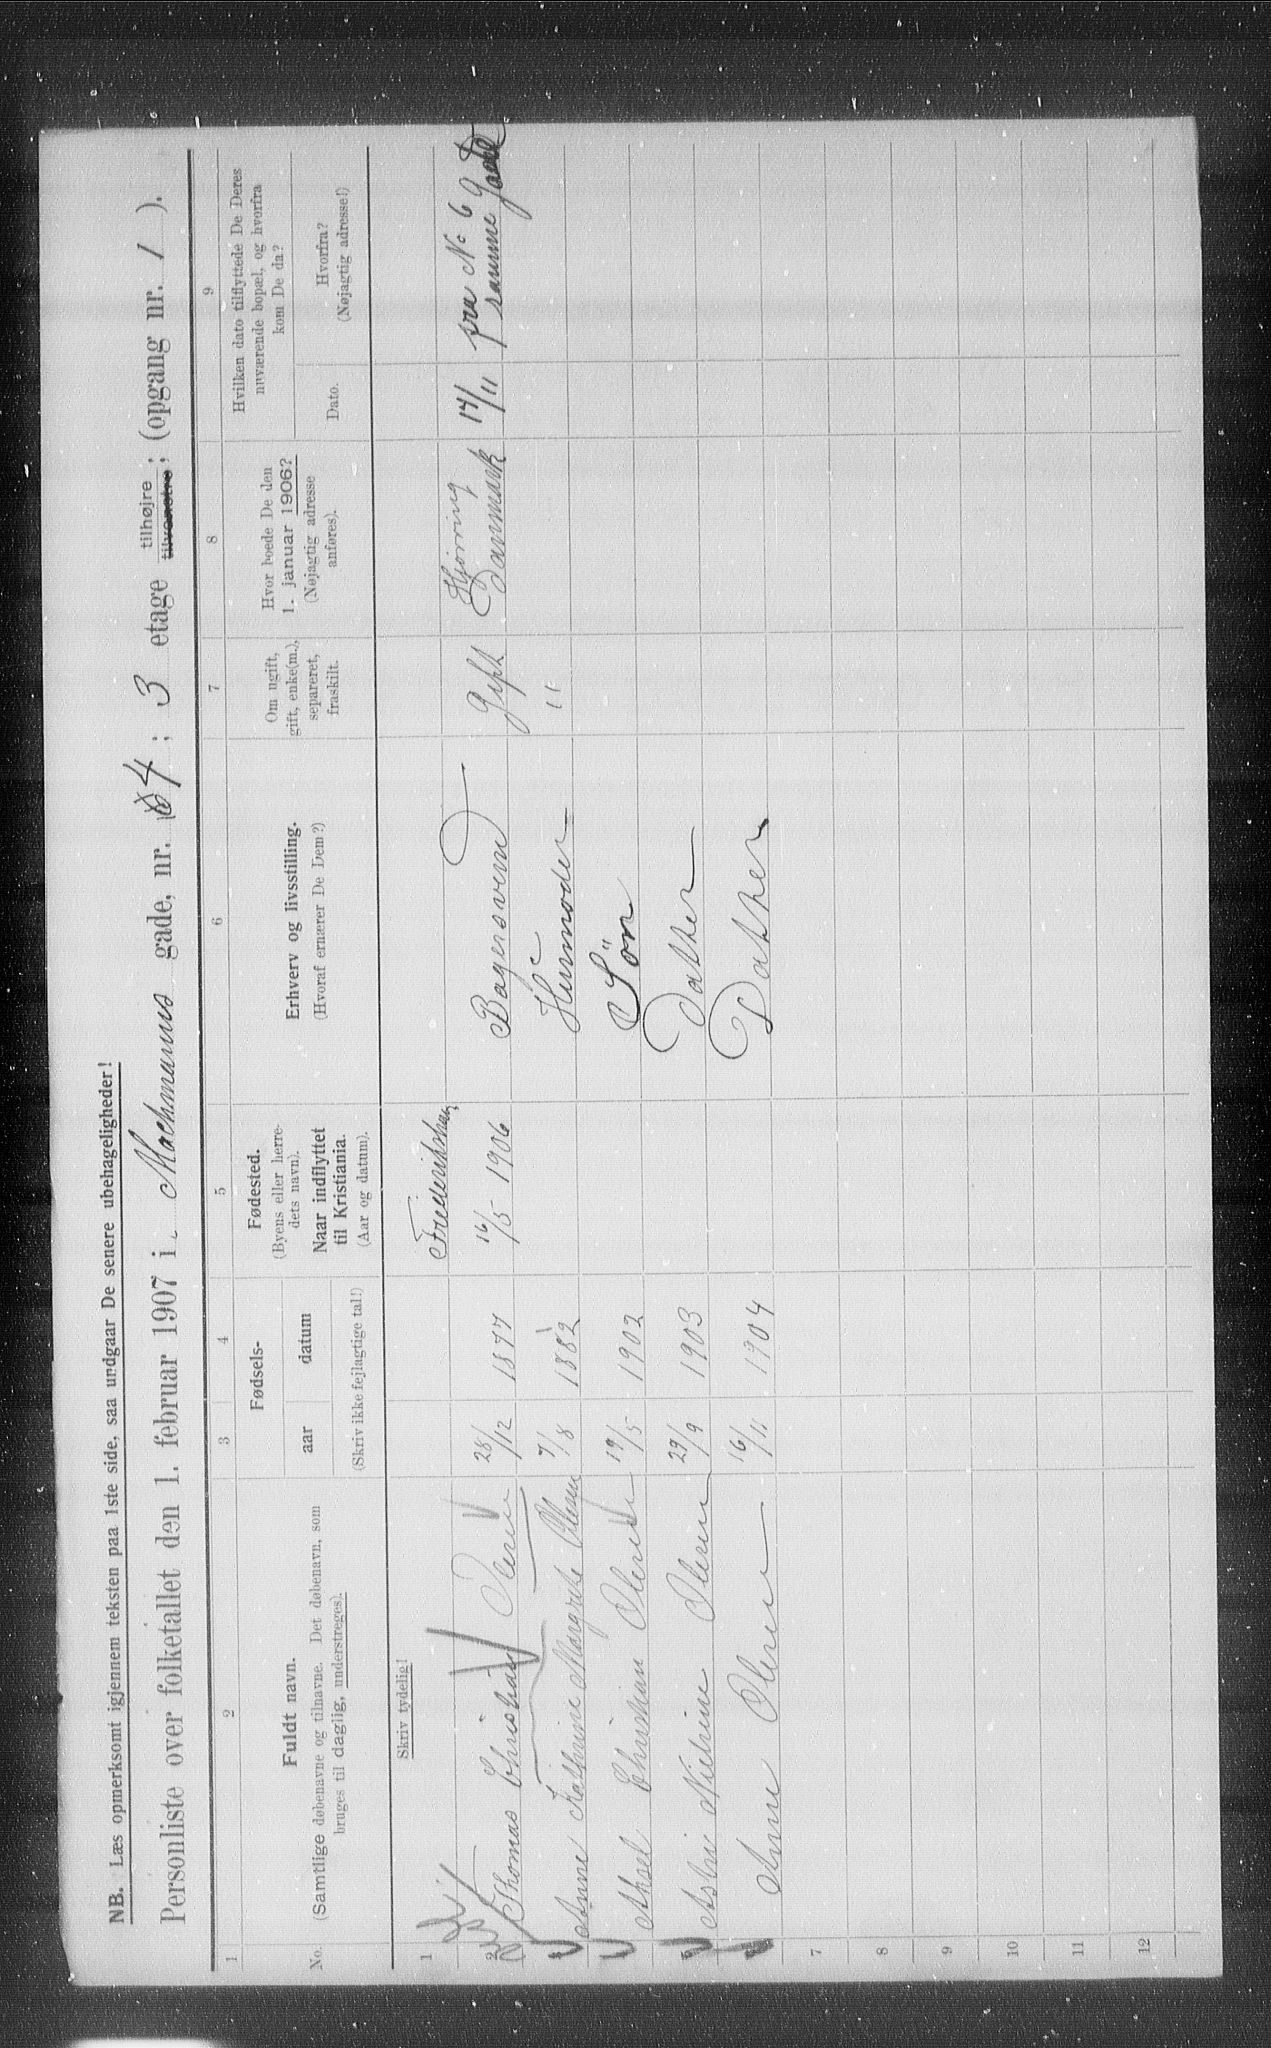 NB. Læs opmerksomt igjennem teksten paa 1ste side, saa undgaar De senere ubehageligheder!
Personliste over folketallet den 1. februar 1907 i Machmanns gade, nr. 4 ; 3 etage tilhøjre tilvenstre; (opgang nr. 1 ).
1 2 3 4 5 6 7 8 9
No.
Fuldt navn.
(Samtlige døbenavne og tilnavne. Det døbenavn, som
bruges til daglig, understreges).
Fødsels-
aar datum
(Skriv ikke fejlagtige tal!)
Fødested.
(Byens eller herre-
dets navn).
Naar indflyttet
til Kristiania.
(Aar og datum).
Erhverv og livsstilling.
(Hvoraf ernærer De Dem?)
Om ugift,
gift, enke(m.),
separeret,
fraskilt.
Hvor boede De den
1. januar 1906?
(Nøjagtig adresse
anføres).
Hvilken dato tilflyttede De Deres
nuværende bopæl, og hvorfra
kom De da?
Dato.
Hvorfra?
(Nøjagtig adresse!)
Skriv tydelig!
1 Frederikshavn Hjørring fra No 6
2 Thomas Christian Olsen 28/12 1877 16/5 1906 Bagersvend Gift Danmark 14/11 samme Gade
Anne Kathrine Margrethe Olsen 7/8 1882 Husmoder "
Aksel Christian Olsen 19/5 1902 Søn
5 Astri Nielsine Olsen 29/9 1903 Datter
Anne Olsen 16/11 1904 Datter
7
8
9
10
11
12